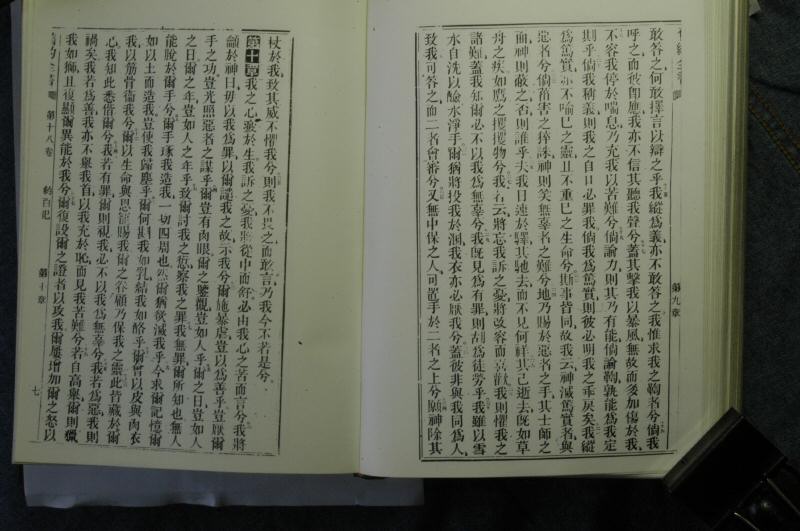 敢答之何敢擇言以辯之乎我縱爲義亦不敢答之我惟求我之鞫者兮倘我
呼之而彼卽應我亦不信其聽我聲兮蓋其擊我以暴風無故而多加傷於我
不容我停於喘息乃充我以苦難兮倘論力則其乃有能倘論鞫孰能爲我定
期乎倘我稱義則我之自口必罪我倘我爲篤實則彼必明我之乖戾矣我縱
爲篤實亦不喻己之靈且不重己之生命兮斯事皆同故我云神滅篤實者與
惡者兮倘菑害之猝誅神則笑無辜者之難兮地乃賜於惡者之手其士師之
面神則蔽之否則誰乎夫我日速於驛其馳去而不見何祥其已逝去旣如草
舟之疾如鷹之攫物兮我若云將忘我訴之憂將改容而喜歡我則懼我之
諸難蓋我知爾必不以我爲無辜兮我旣見爲有罪則胡爲徒勞乎我雖以雪
水自洗以鹼水淨手爾猶將投我於溷我衣亦必厭我兮蓋彼非與我同爲人
致我可答之而二名會審兮又無中保之人可置手於二名之上兮願神除其
第九章
杖於我致其威不懼我兮則我不畏之而敢言乃我今不若是兮
第十章 我之心疲於生我訴之憂我將從中而紓必由我心之苦而言兮我將
籲於神曰毋以我爲罪以爾譴我之故示我兮爾施暴虐豈以爲善乎豈厭爾
手之功豈光照惡者之謀乎爾豈有肉眼爾之鑒觀豈如人乎爾之日豈如人
之日爾之年豈如人之年乎致爾討我之愆察我之罪我無罪爾所知也無人
能脫於爾手兮爾手琢我造我一切四周也然爾猶欲滅我乎今求爾記憶爾
如以土而造我豈使我歸塵乎爾何斟我如乳結我如酪乎爾曾以皮與肉衣
我以筋骨備我兮爾以生命與恩寵賜我爾之眷顧乃保我之靈此昔藏於爾
心我知此悉偕爾兮我若有罪爾則視我必不以我爲無辜兮我若爲惡我則
禍矣我若爲善我亦不舉我首以我充於恥而見我苦難兮若自高舉爾則獵
我如獅且復顯爾異能於我兮爾復設爾之證者以攻我爾屢增加爾之怒以
第十八卷 約百記 第十章 七